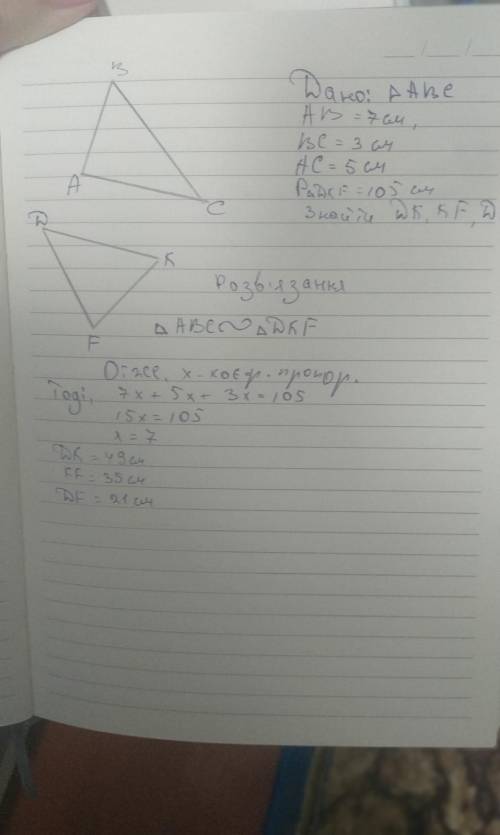 B
A
C
Дано: △ABC
AB = 7 см,
BC = 3 см
AC = 5 см
P△DKF = 105 см
Знайти DK, KF, D
D
K
F
Розв'язання
△ABC ∾ △DKF
Отже, x - коеф. пропор.
Тоді, 7x + 5x + 3x = 105
15x = 105
x = 7
DK = 49 см
KF = 35 см
DF = 21 см